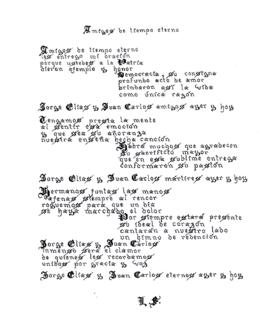 Amigos de tiempo eterno
Amigos de tiempo eterno
les entrego mi oración
porque ustedes a la Patria
dieron ejemplo y honor
Democracia, su consigna
profundo acto de amor
brindaron así la vida
como única razón
Jorge Elías y Juan Carlos amigos ayer y hoy
Tengamos presta la mente
al sentir esa emoción
y que sea su añoranza
nuestra enseña hecha canción
Habrá muchos que agradecen
su sacrificio mayor
que en esa sublime entrega
conformaron su pasión
Jorge Elías y Juan Carlos mártires ayer y hoy
Hermanos juntas las manos
siempre al rencor
roguemos para que un día
se haya marchado el dolor
Por siempre estará presente
su ideal de corazón
cantarán a nuestro lado
un himno de redención
Jorge Elías y Juan Carlos
inmenso será el clamor
de quienes les recordamos
unidos por gracia y voz
Jorge Elías y Juan Carlos eternos ayer y hoy